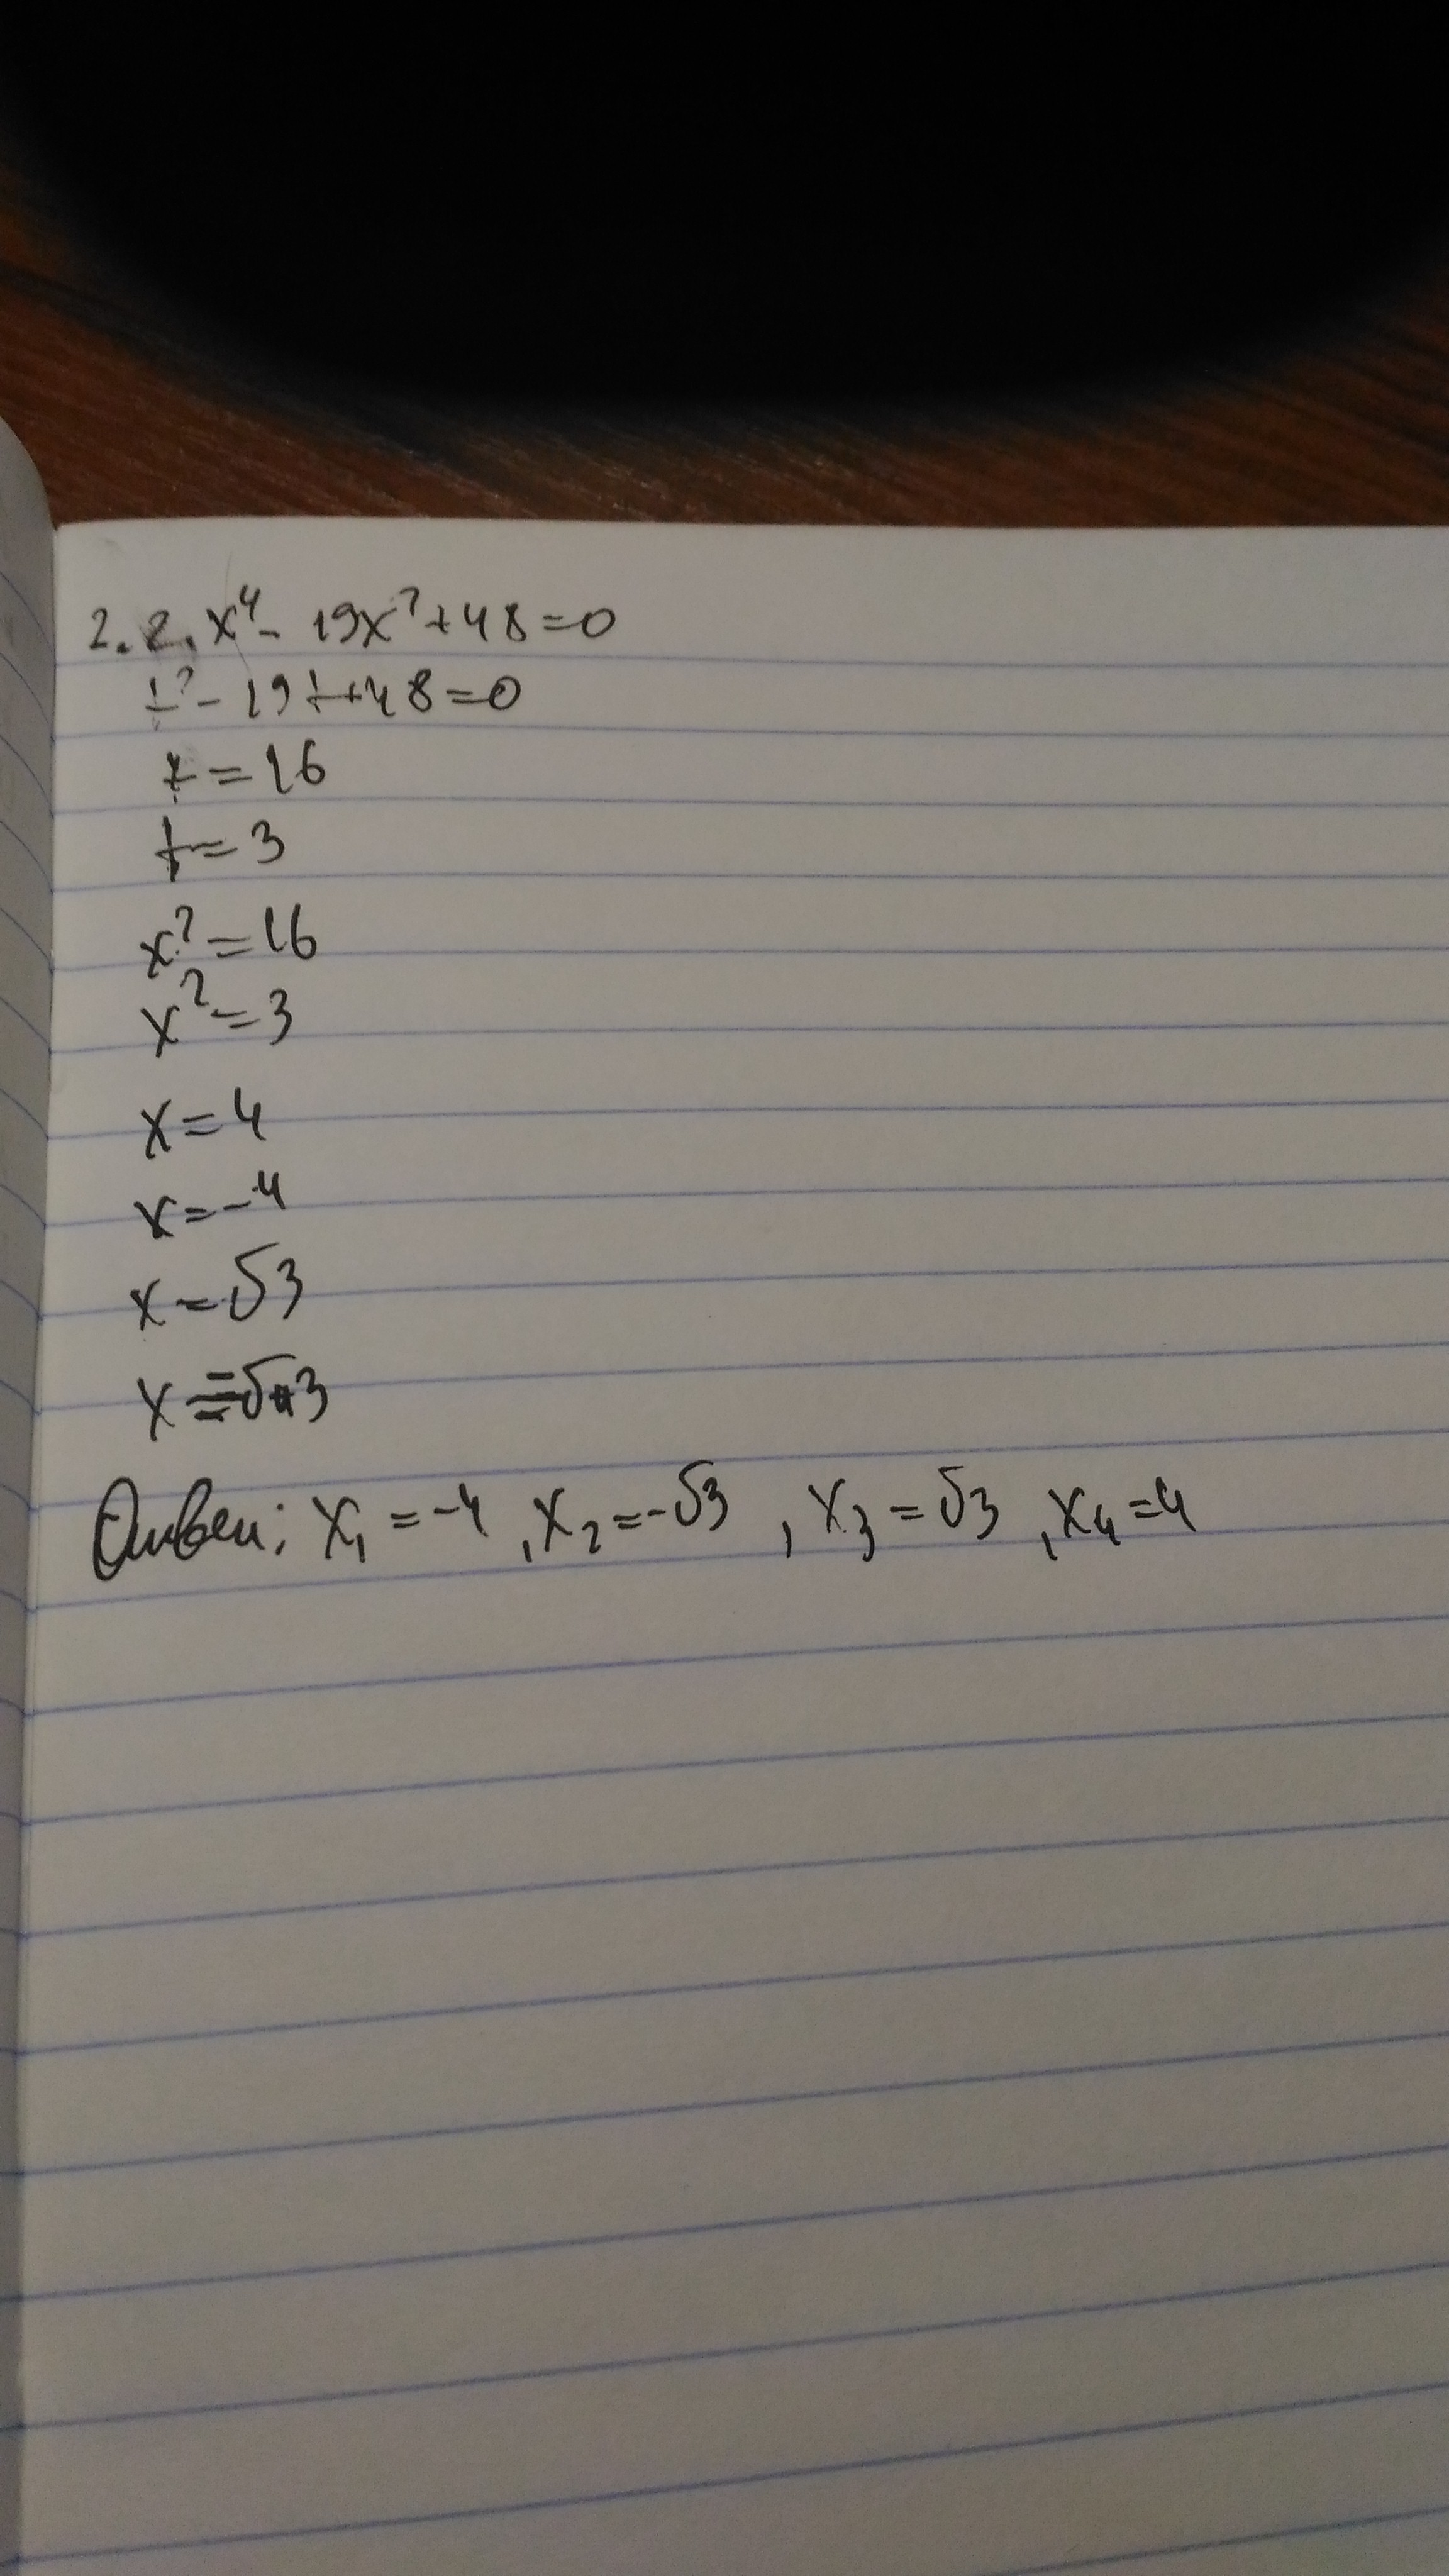 2. 2. x⁴ - 19x² + 48 = 0
t² - 19t + 48 = 0
t = 16
t = 3
x² = 16
x² = 3
x = 4
x = -4
x = √3
x = -√3
Ответ: x₁ = -4, x₂ = -√3, x₃ = √3, x₄ = 4